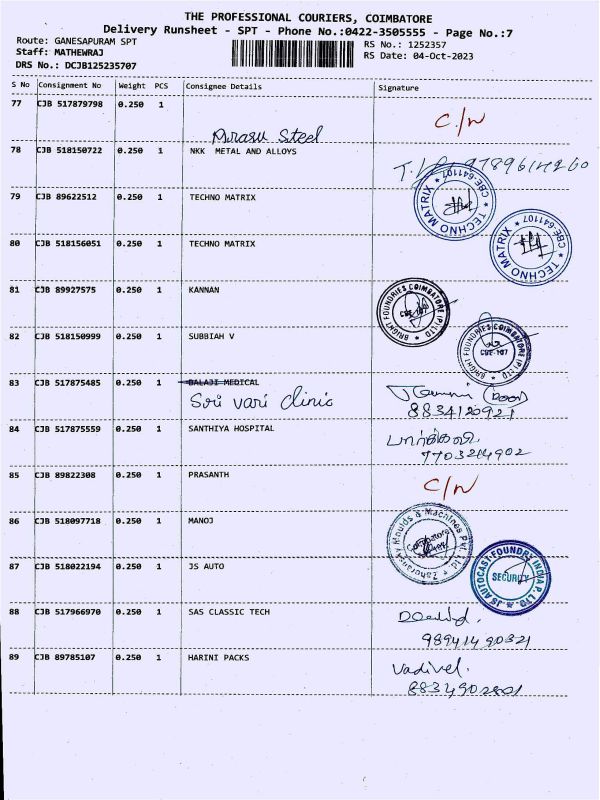 THE PROFESSIONAL COURIERS, COIMBATORE
Delivery Runsheet - SPT - Phone No.:0422-3505555 - Page No.:7
Route: GANESAPURAM SPT
RS No.: 1252357
Staff: MATHEWRAJ
RS Date: 04-Oct-2023
DRS No.: DCJB125235707
S No Consignment No Weight PCS Consignee Details Signature
77 CJB 517879798 0.250 1 C/N
Murasu Steel
78 CJB 518150722 0.250 1 NKK METAL AND ALLOYS
79 CJB 89622512 0.250 1 TECHNO MATRIX
TECHNO MATRIX CBE-641107
80 CJB 518156051 0.250 1 TECHNO MATRIX
TECHNO MATRIX CBE-641107
81 CJB 89927575 0.250 1 KANNAN
BRIGHT FOUNDRIES COIMBATORE (P) LTD
CBE-107
82 CJB 518150999 0.250 1 SUBBIAH V
BRIGHT FOUNDRIES COIMBATORE (P) LTD
CBE-107
83 CJB 517875485 0.250 1 BALAJI MEDICAL
Sri vari clinic
8834120921
84 CJB 517875559 0.250 1 SANTHIYA HOSPITAL
7703214902
85 CJB 89822308 0.250 1 PRASANTH C/N
86 CJB 518097718 0.250 1 MANOJ
Moulds & Machines Pvt. Ltd.
Coimbatore
87 CJB 518022194 0.250 1 JS AUTO
JS AUTOCAST FOUNDRY INDIA P. LTD.
SECURITY
88 CJB 517966970 0.250 1 SAS CLASSIC TECH
9894190321
89 CJB 89785107 0.250 1 HARINI PACKS Vadivel.
8834902801